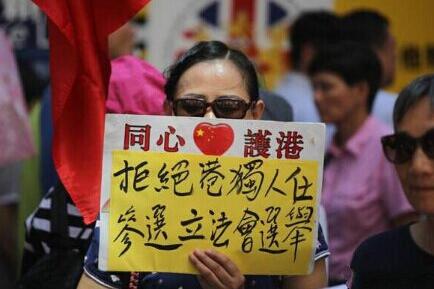 同心 護港
拒絕港獨人任
參選立法會選舉